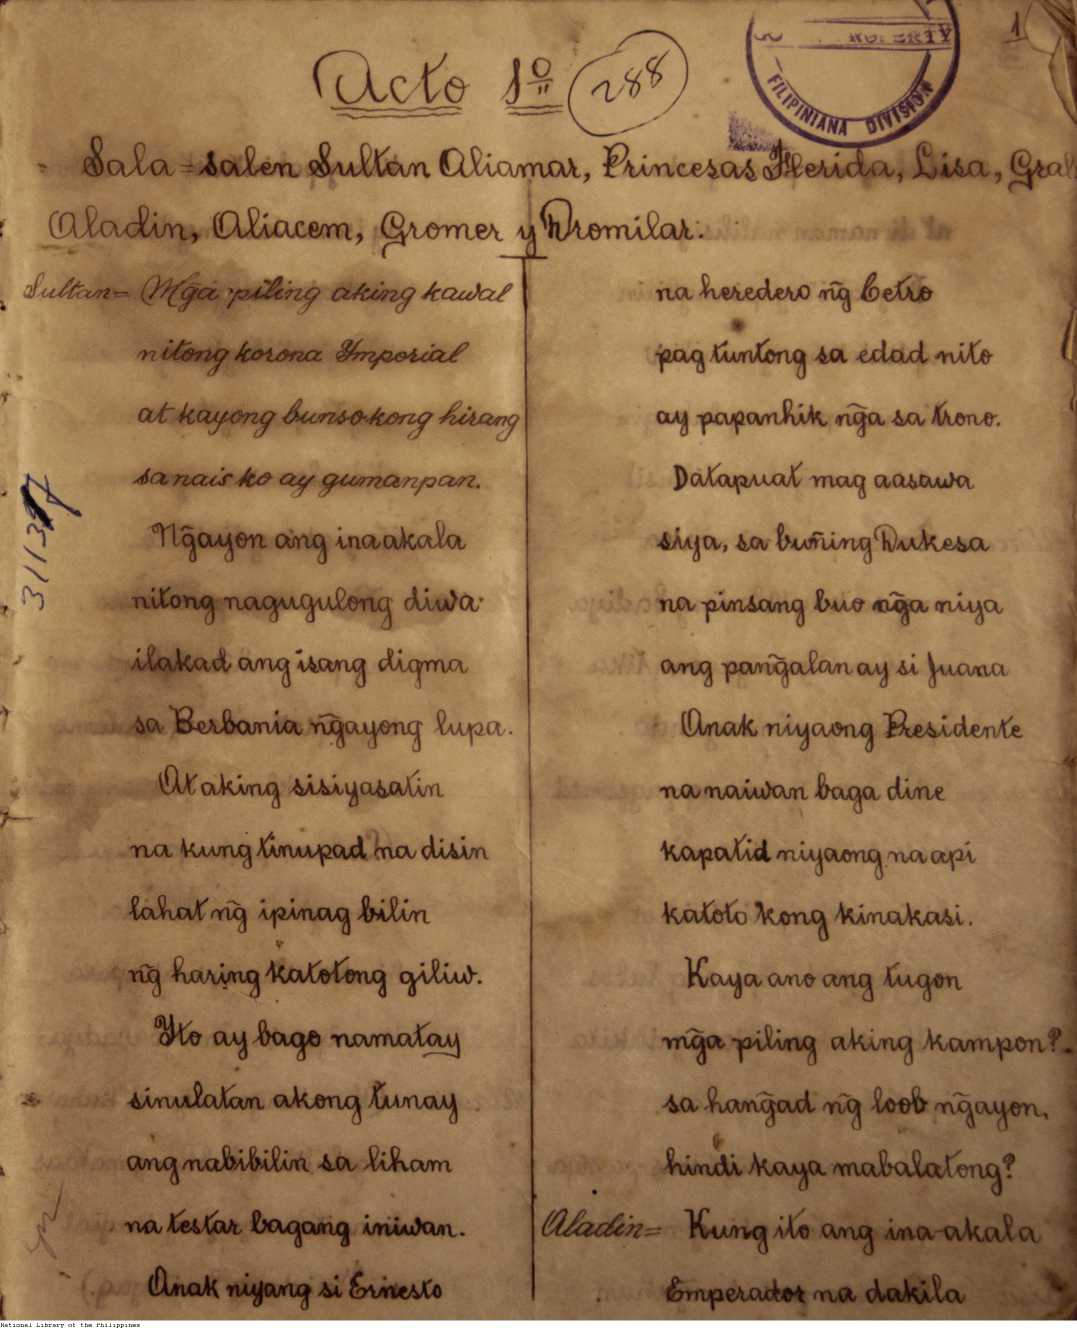 1
Acto 1º
288
FILIPINIANA DIVISION
Sala = salen Sultan Aliamar, Princesas Flerida, Lisa, Gral
Aladin, Aliacem, Gromer y Dromilar.
Sultan = Mg̃a piling aking kawal
nitong korona Ymperial
at kayong bunso kong hirang
sa nais ko ay gumanpan.
Ng̃ayon ang ina akala
nitong nagugulong diwa
ilakad ang isang digma
sa Berbania ng̃ayong lupa.
At aking sisiyasatin
na kung tinupad na disin
lahat ng̃ ipinag bilin
ng̃ haring katotong giliw.
Yto ay bago namatay
sinulatan akong tunay
ang nabibilin sa liham
na testar bagang iniwan.
Anak niyang si Ernesto
31137
na heredero ng̃ Cetro
pag tuntong sa edad nito
ay papanhik ng̃a sa trono.
Datapuat mag aasawa
siya, sa buñing Dukesa
na pinsang buo ng̃a niya
ang pang̃alan ay si Juana
Anak niyaong Presidente
na naiwan baga dine
kapatid niyaong na api
katoto kong kinakasi.
Kaya ano ang tugon
mg̃a piling aking kampon?
sa hang̃ad ng̃ loob ng̃ayon,
hindi kaya mabalatong?
Aladin = Kung ito ang ina-akala
Emperador na dakila
National Library of the Philippines